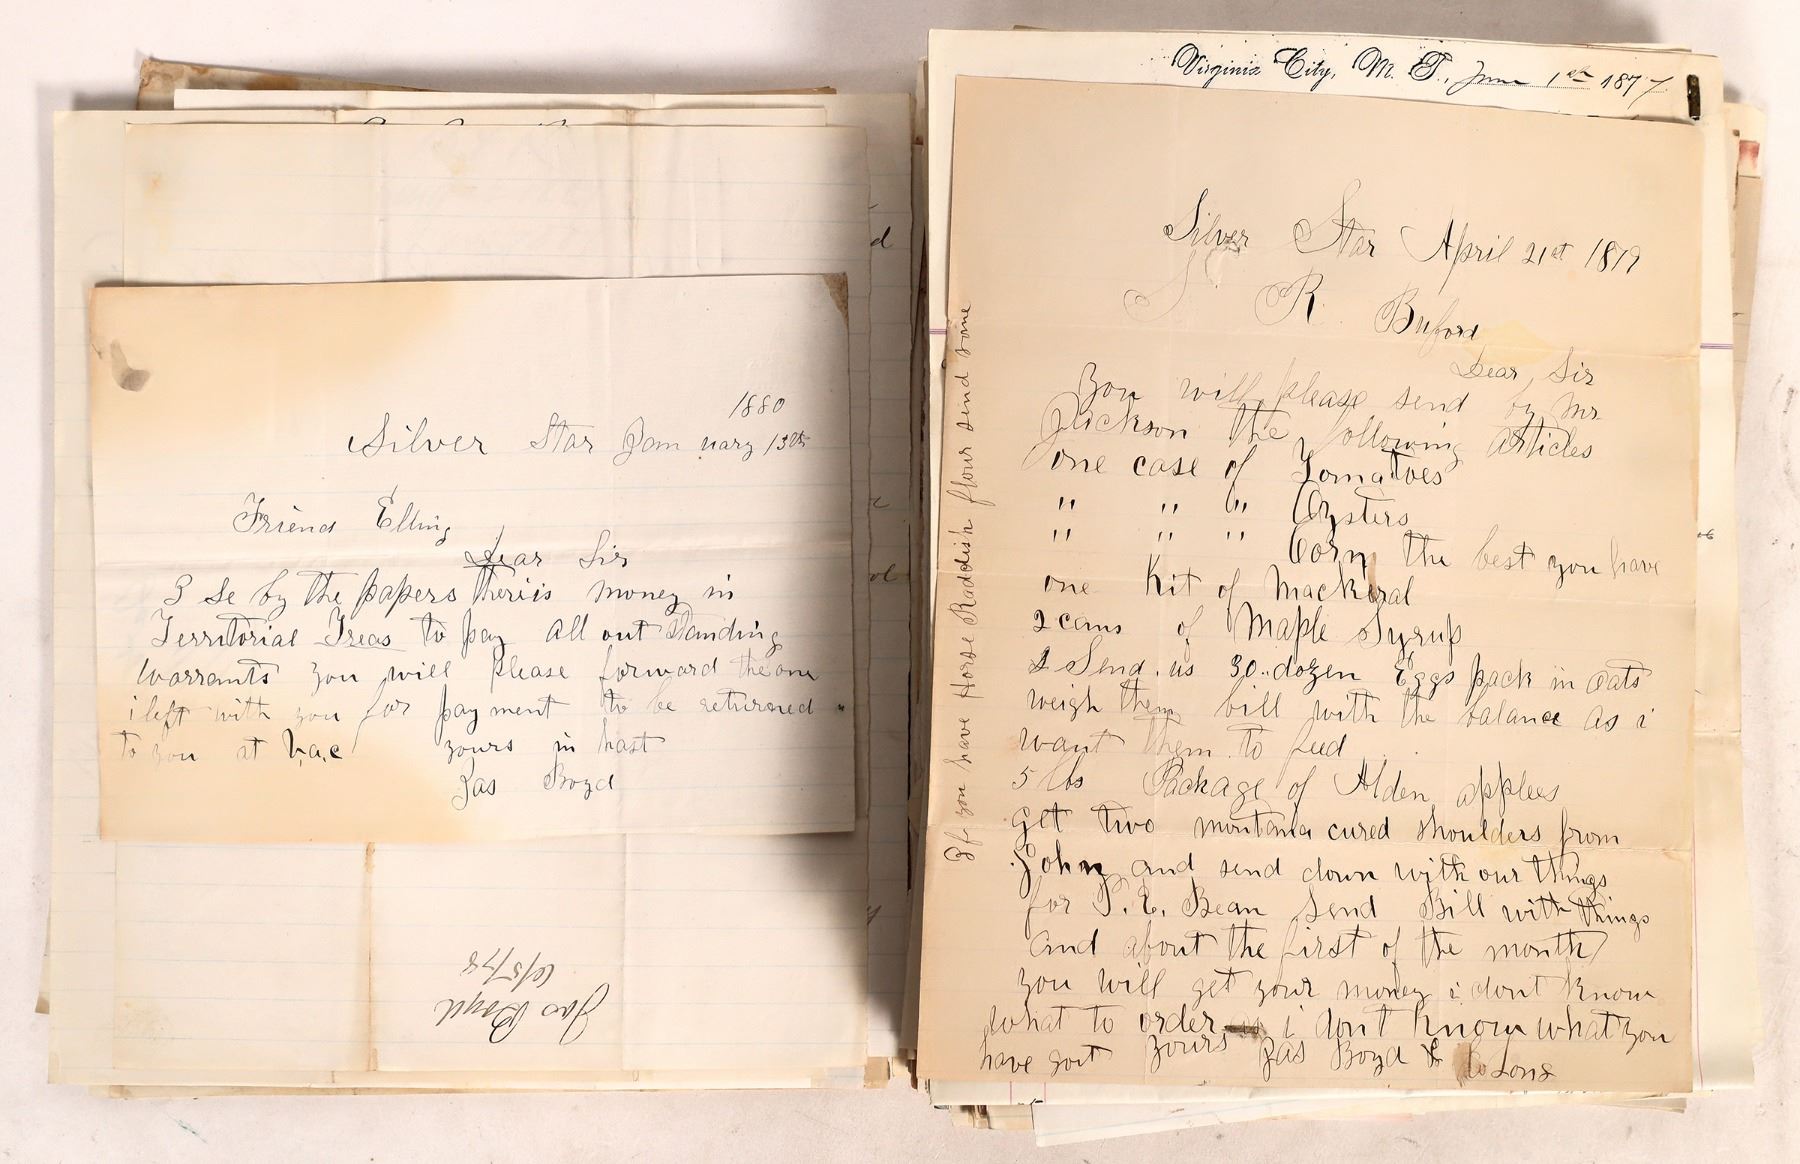 1880
Silver Star Jan uary 13th
Friend Elling
Dear Sir
I Se by the papers theriis money in
Territorial Treas to pay all out standing
warrants you will please forward the one
i left with you for payment to be returned
to you at V,a,c
yours in hast
Jas Boyd
Jas Boyd
6/5/78
Virginia City, M. T., June 1st 1877
Silver Star April 21st 1879
S R. Buford
Dear, Sir
You will please send by Mr
Jackson the following articles
one case of Tomatoes
" " " Oysters
" " " Corn the best you have
one Kit of Mackeral
2 cans of Maple Syrup
& Send us 30 dozen Eggs pack in oats
weigh them bill with the balance as i
want them to feed
5 lbs Package of Alden applees
get two montana cured shoulders from
John and send down with our things
for T. E. Bean Send Bill with things
and about the first of the month
you will get your money i dont know
what to order i don't know what you
have got yours Jas Boyd & Sons
If you have Horse Raddish flour send some